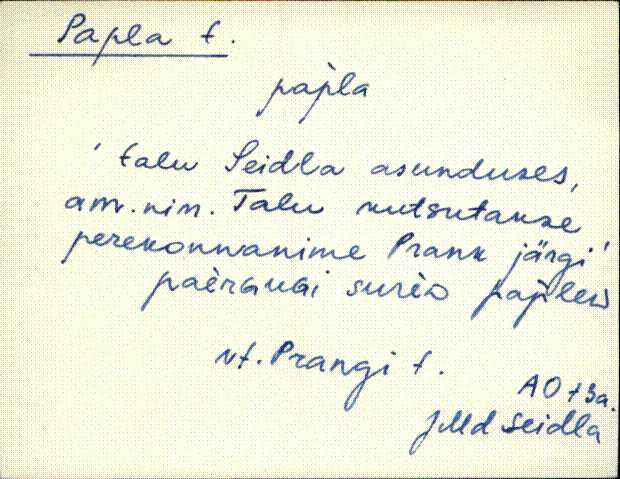 Papla t.
pap̀la
' talu Seidla asunduses,
am. nim. Talu kutsutakse
perekonnanime Prank järgi'
surèo
vt. Prangi t.
AO t3a.
JMd Seidla